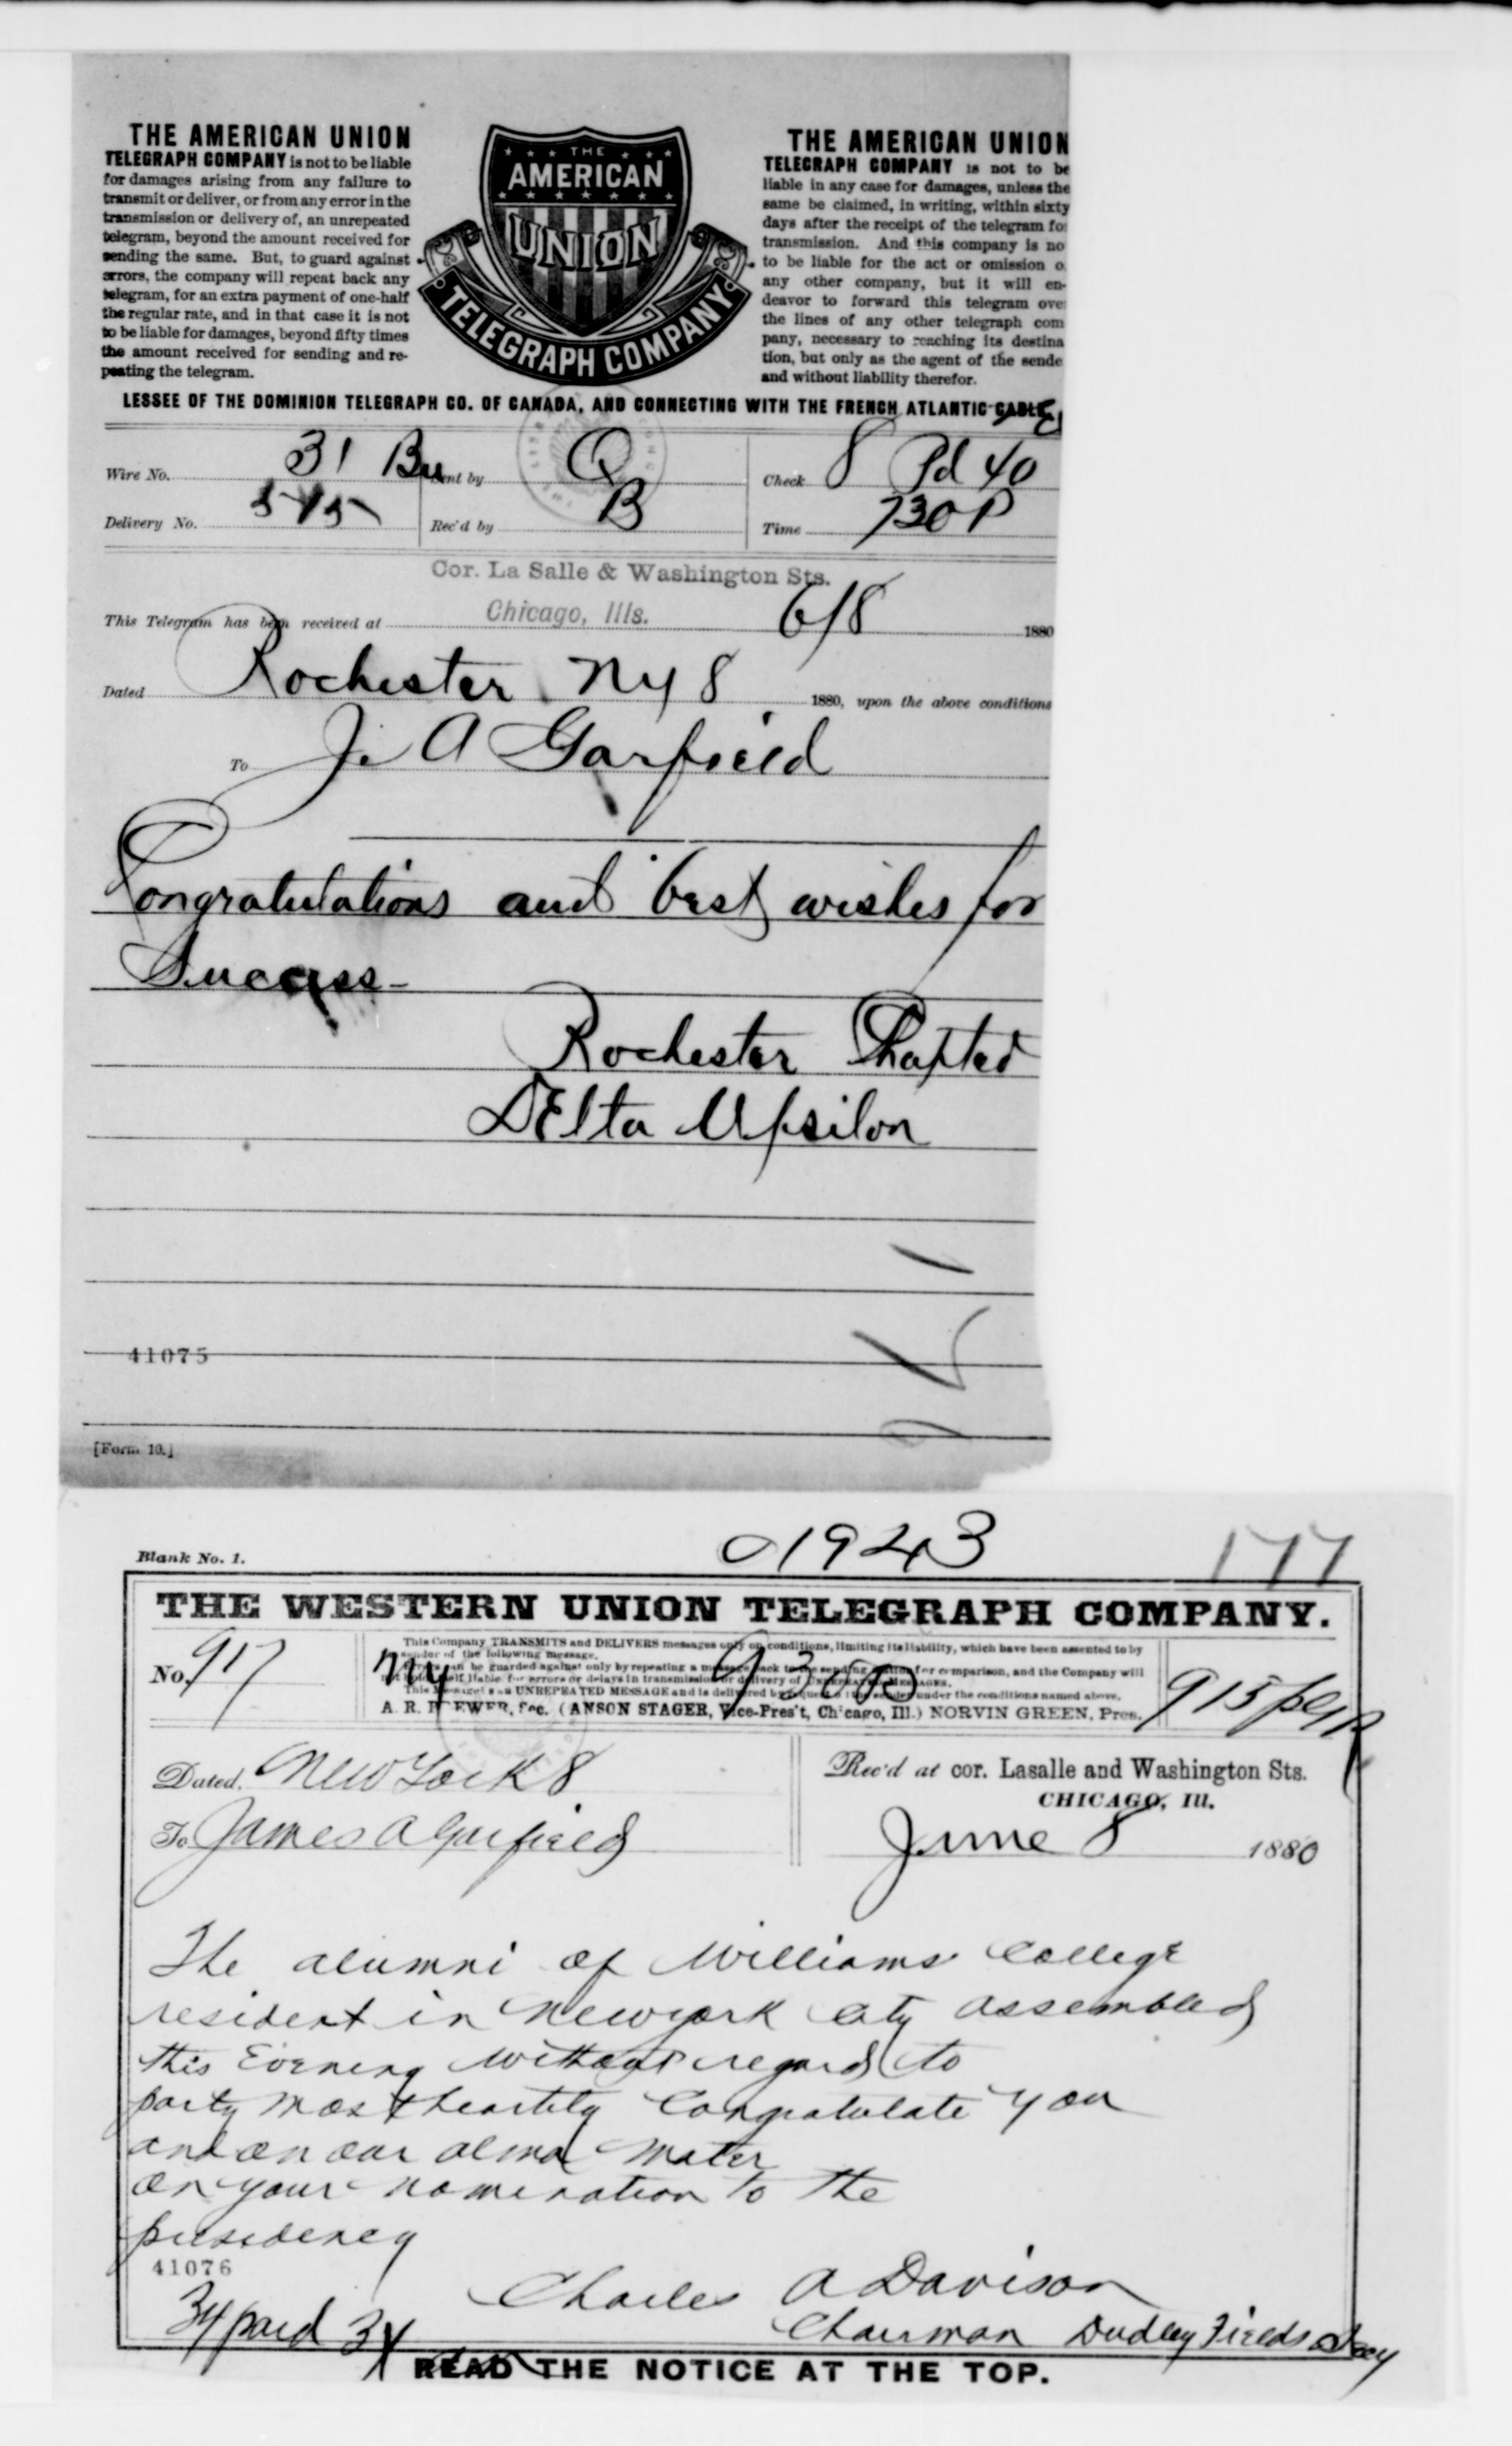 THE AMERICAN UNION
TELEGRAPH COMPANY is not to be liable
for damages arising from any failure to
transmit or deliver, or from any error in the
transmission or delivery of, an unrepeated
telegram, beyond the amount received for
sending the same. But, to guard against
errors, the company will repeat back any
telegram, for an extra payment of one-half
the regular rate, and in that case it is not
to be liable for damages, beyond fifty times
the amount received for sending and re-
peating the telegram.
THE
AMERICAN
UNION
TELEGRAPH COMPANY
THE AMERICAN UNION
TELEGRAPH COMPANY is not to be
liable in any case for damages, unless the
same be claimed, in writing, within sixty
days after the receipt of the telegram fo
transmission. And this company is no
to be liable for the act or omission o
any other company, but it will en-
deavor to forward this telegram ove
the lines of any other telegraph com
pany, necessary to reaching its destina
tion, but only as the agent of the sende
and without liability therefor.
LESSEE OF THE DOMINION TELEGRAPH CO. OF CANADA, AND CONNECTING WITH THE FRENCH ATLANTIC CABLE
Wire No. 31 Bu Sent by Q Check 8 Pd 40
Delivery No. 545 Rec'd by B Time 730P
Cor. La Salle & Washington Sts.
This Telegram has been received at Chicago, Ills. 6/8 1880
Dated Rochester NY 8 1880, upon the above conditions
To J. A Garfield
Congratulations and best wishes for
Success-
Rochester Chapted
DElta Upsilon
41075
[Form 10.]
01943 177
Blank No. 1.
THE WESTERN UNION TELEGRAPH COMPANY.
This Company TRANSMITS and DELIVERS messages only on conditions, limiting its liability, which have been assented to by
sender of the following message.
can be guarded against only by repeating a message back to the sending station for comparison, and the Company will
not hold itself liable for errors or delays in transmission or delivery of UNREPEATED MESSAGES.
This Message is an UNREPEATED MESSAGE and is delivered by request of the sender under the conditions named above.
A. R. BREWER, Sec. (ANSON STAGER, Vice-Pres't, Chicago, Ill.) NORVIN GREEN, Pres.
No. 917 Ny 930
Dated. New York 8
To James A Garfield
Rec'd at cor. Lasalle and Washington Sts.
CHICAGO, Ill.
June 8 1880
The alumni of Williams College
resident in Newyork City assembled
this Evening without regard to
party most heartily Congratulate you
and on our alma mater
on your nomination to the
presidency
41076
Charles A Davison
Chairman Dudley Fields Secy
34 paid 34
READ THE NOTICE AT THE TOP.